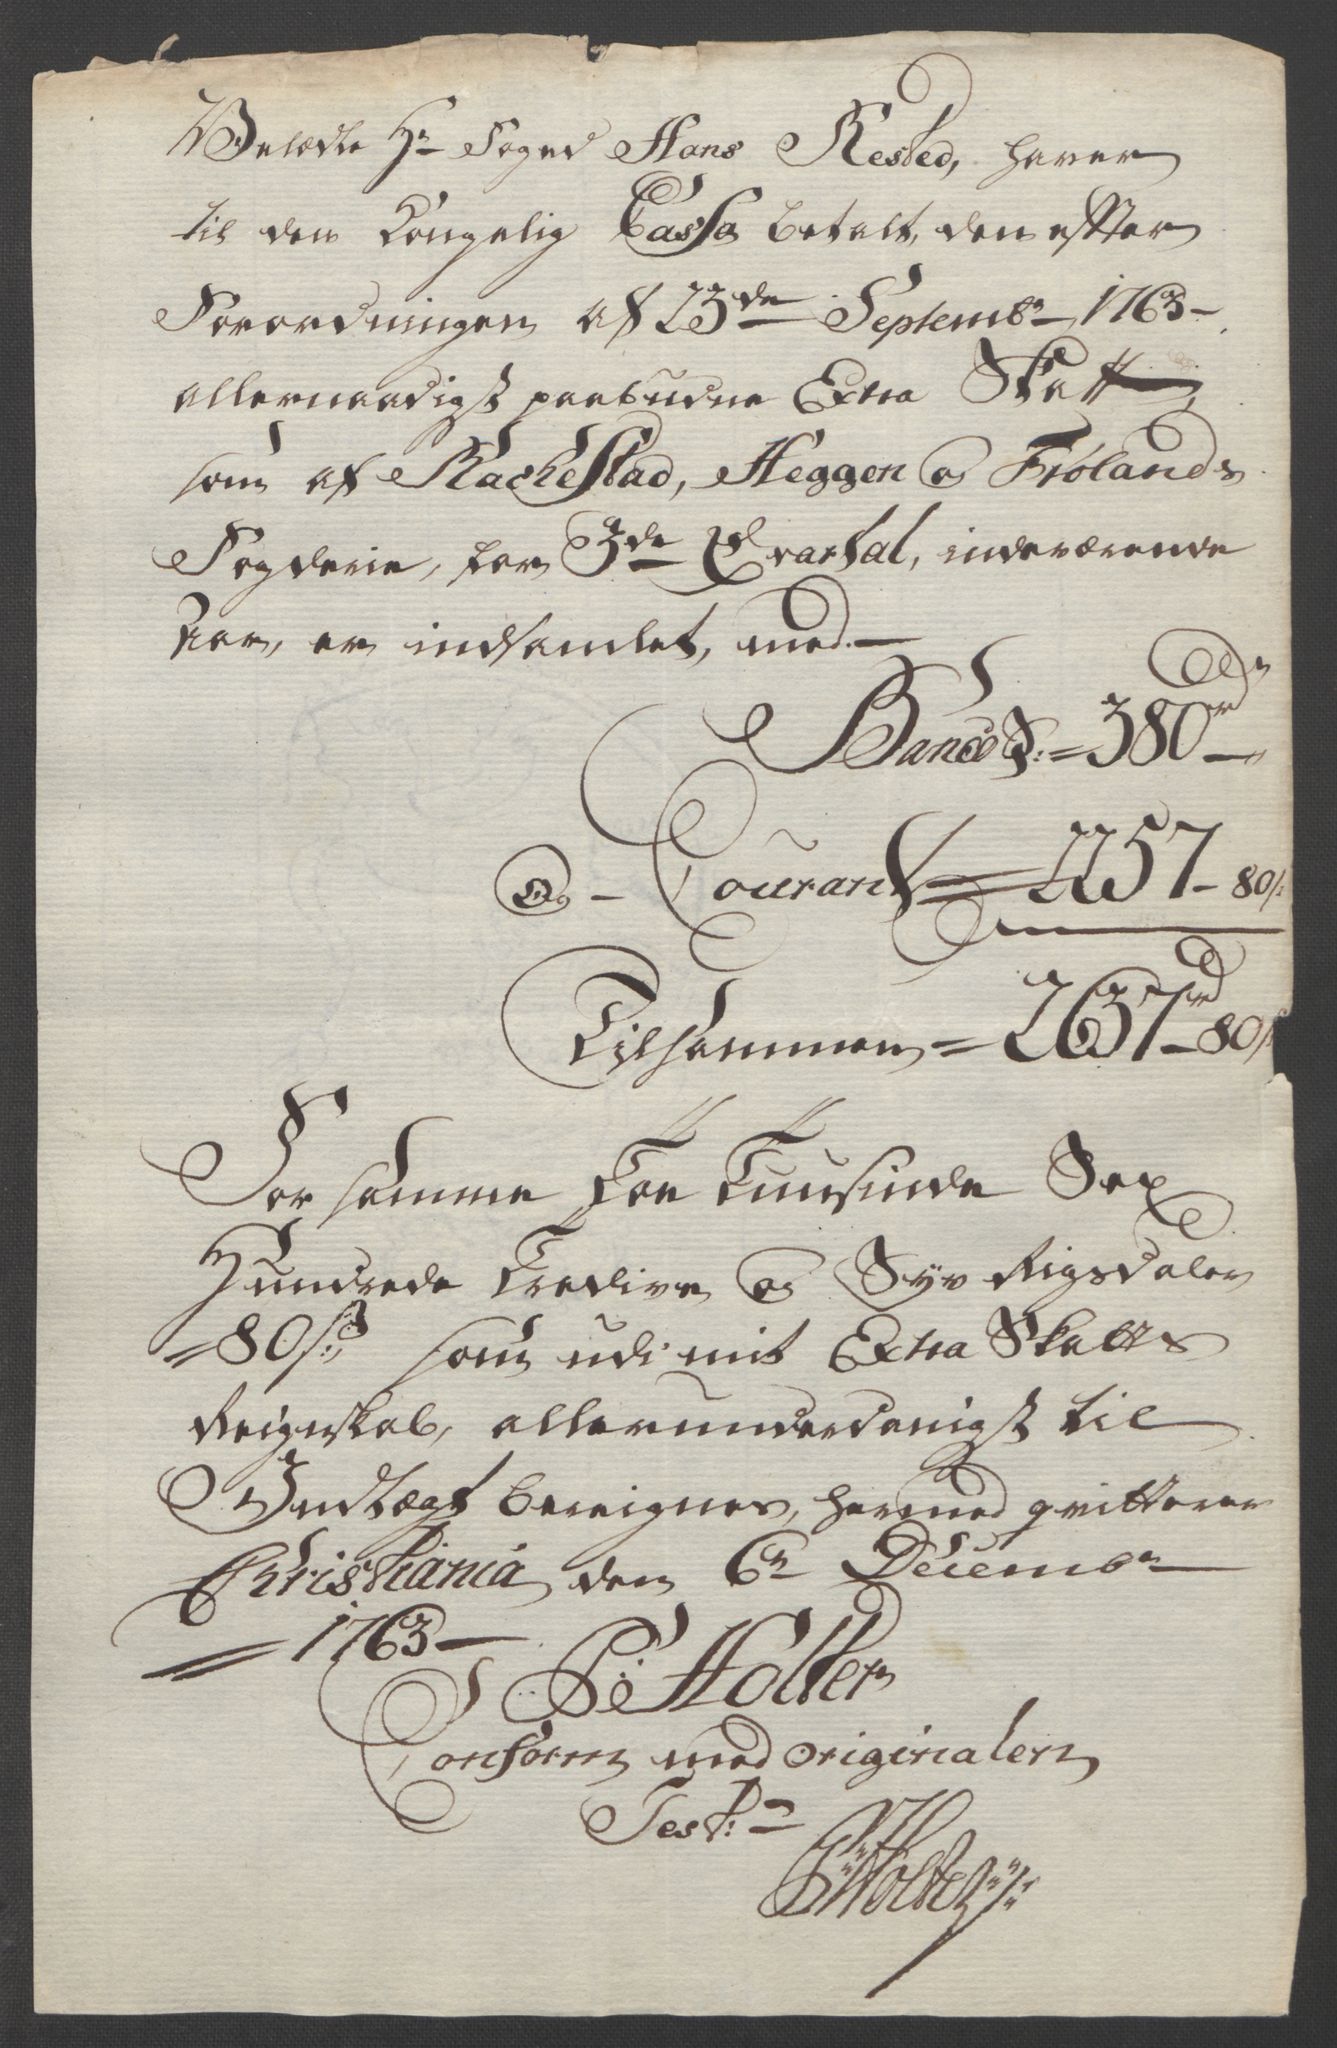 Velædle Hr Foged Hans Rested, haver
til den Kongelig Cassa betalt, den efter
Forordningen af 23de Septembr 1763
allernaadigst paabudne Extra Skatt,
som af Rachestad, Heggen og Frølands
Fogderie, for 3de Qvartal, indeværende
Aar, er indsamlet, med
Banco S: = 380 rd
og - Courant = 2257 - 80 s:
Tilsammen = 2637 rd 80 s
For samme Toe Tuusinde Sex
Hundrede Tredive og Syv Rigsdaler
= 80 s: som udi mit Extra Skatts
Reignskab, allerunderdanigst til
Indtægt bereignes, hermed qvitterer
Christiania den 6te Decembr
1763
P: Holter
Conform med originalen
Test:
P: Holter